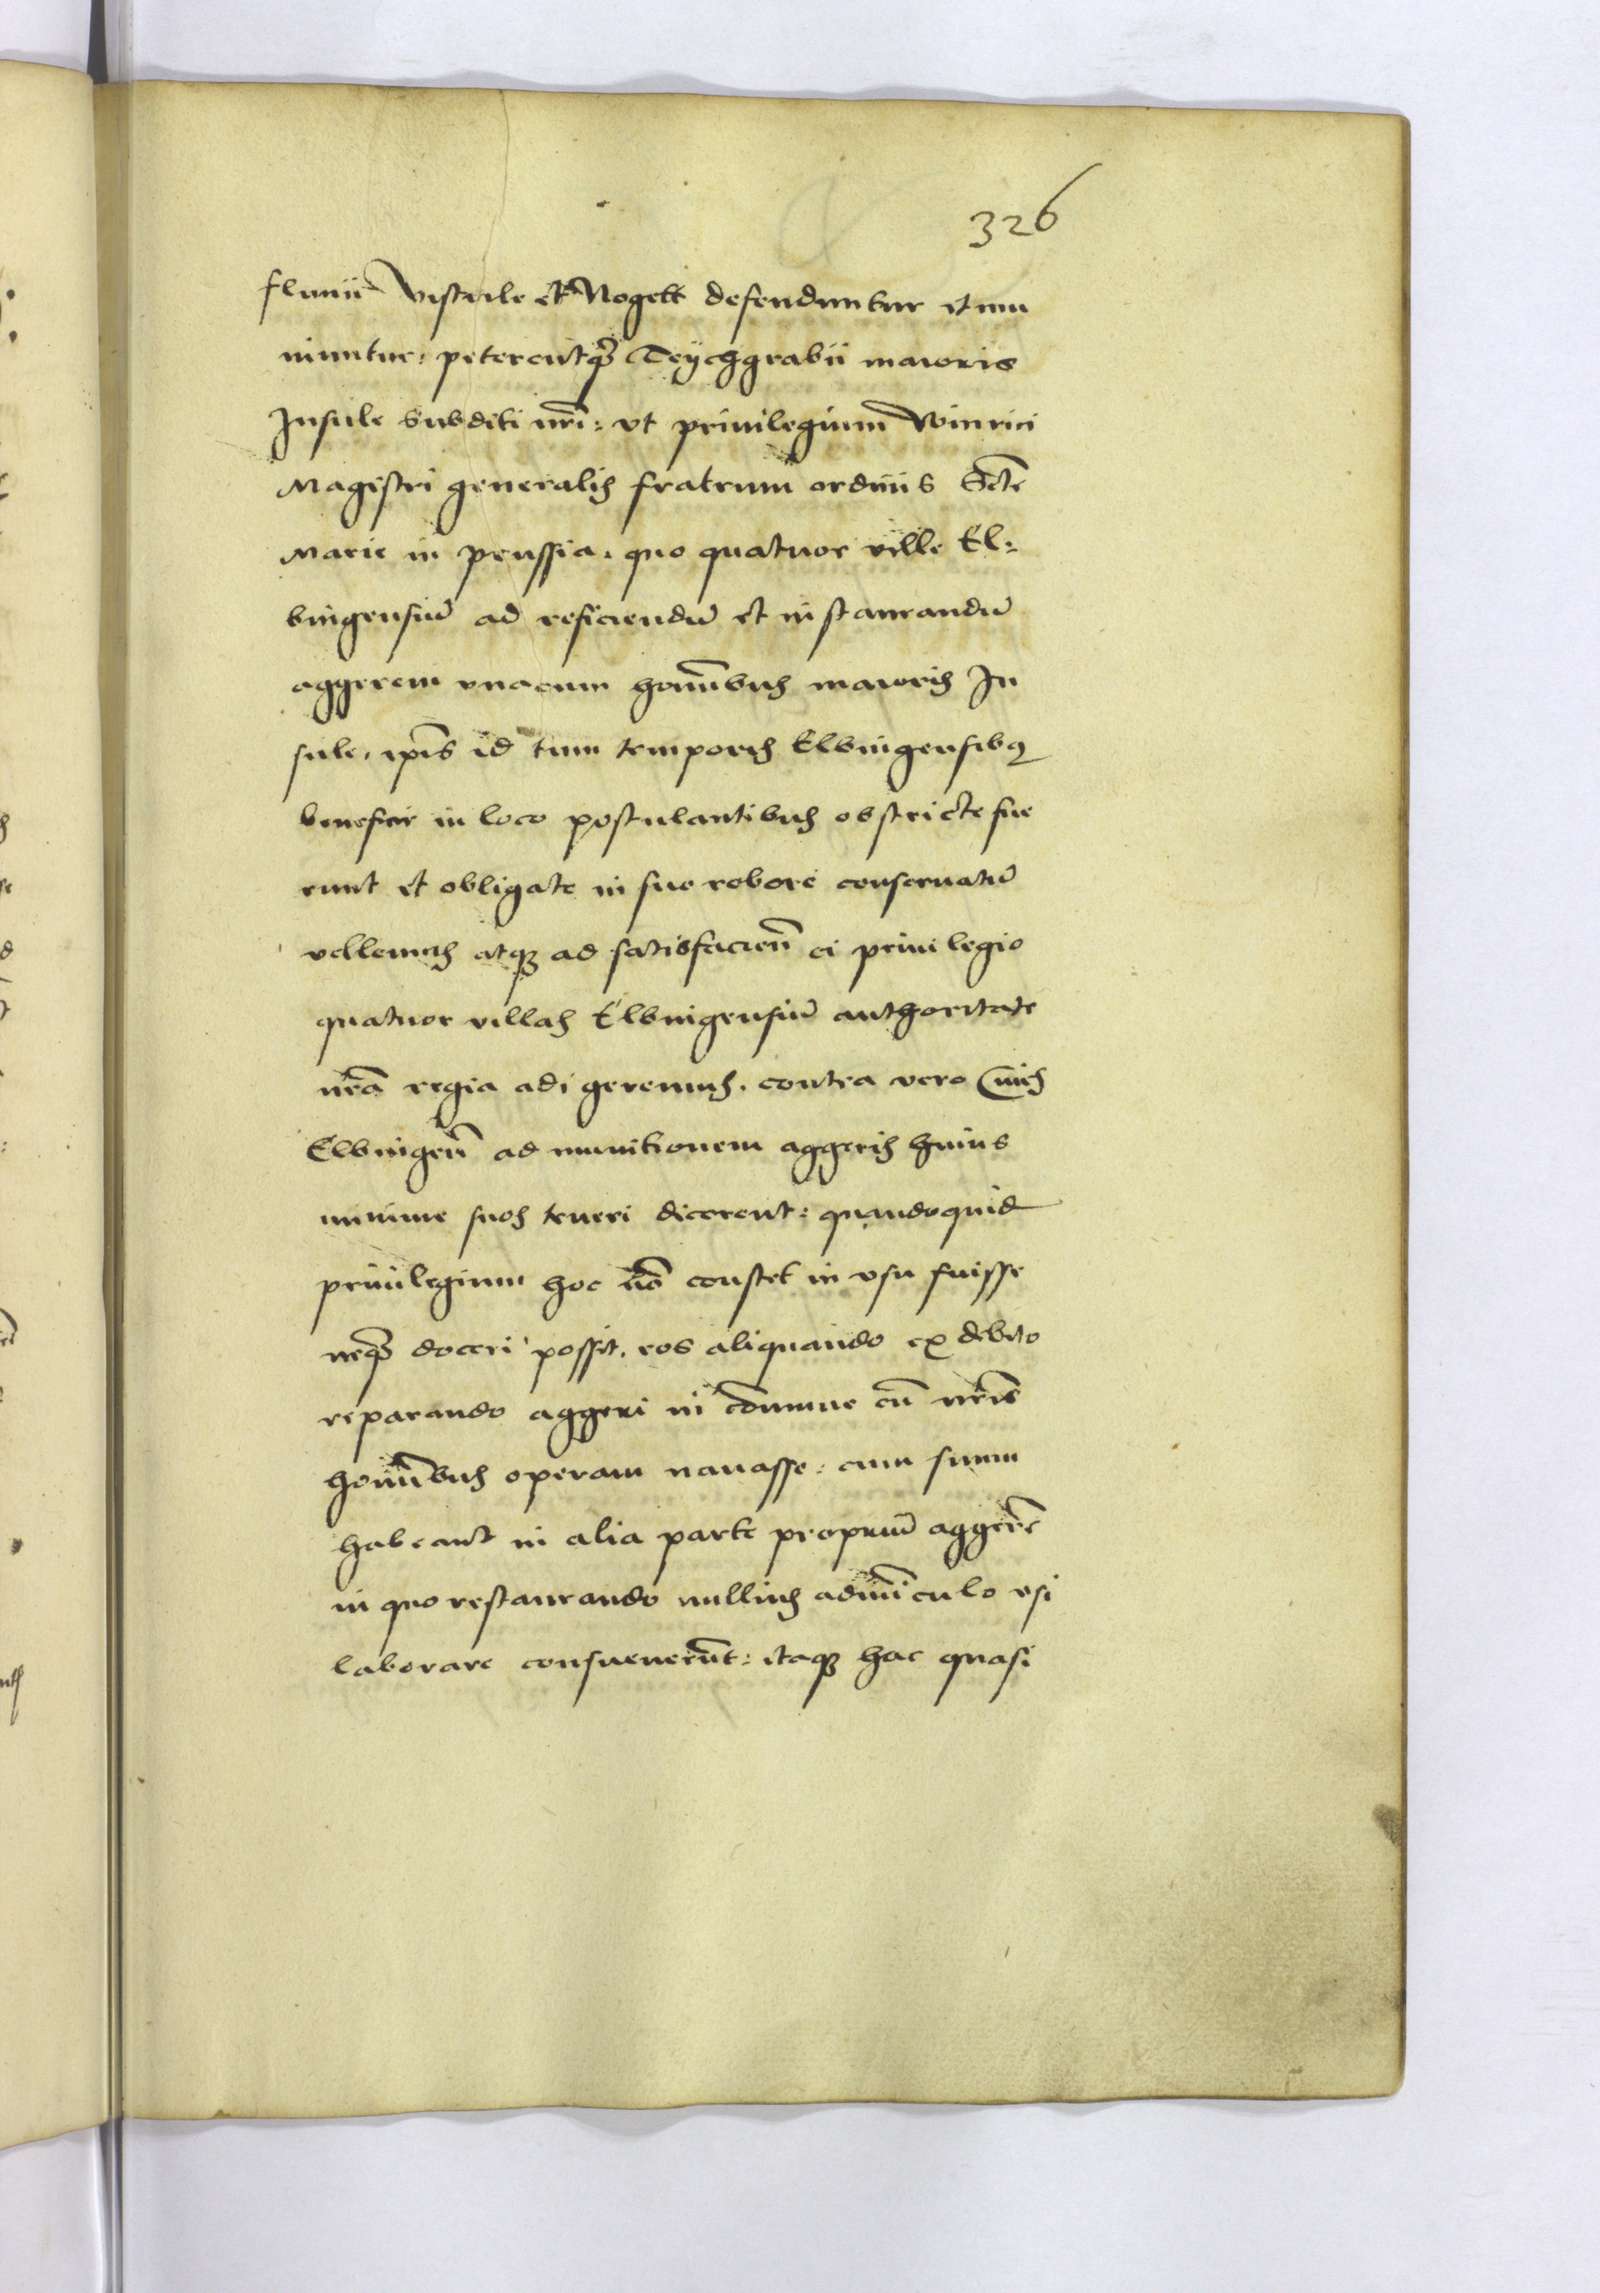 326
fluuii Vistule et Nogett defenduntur et mu
niuntur: peterentqꝫ Teychgrabii maioris
Insule subditi nr̄i: vt priuilegium Winrici
Magistri generalis fratrum ordinis Scte
Marie in prussia. quo quatuor ville El:
bingensiū ad reficiendū et instaurandū
aggerem vnacum hominibus maioris In
sule, ip̄is id tum temporis Elbingensibꝫ
beneficii in loco postulantibus obstricte fue
runt et obligate in suo robore conseruatū
vellemus atqꝫ ad satisfacien̄ ei priuilegio
quatuor villas Elbingensiū authoritate
nr̄a regia adigeremus. contra vero Ciues
Elbingen̄ ad munitionem aggeris huius
minime suos teneri dicerent: quandoquid
priuilegium hoc nō constet in vsu fuisse
neqꝫ doceri possit. eos aliquando ex debito
reparando aggeri in cōmune cū nr̄is
hominibus operam nauasse: cum suum
habeant in alia parte propriū aggerē
in quo restaurando nullius adminiculo vsi
laborare consueuerūt: itaqꝫ hac quasi